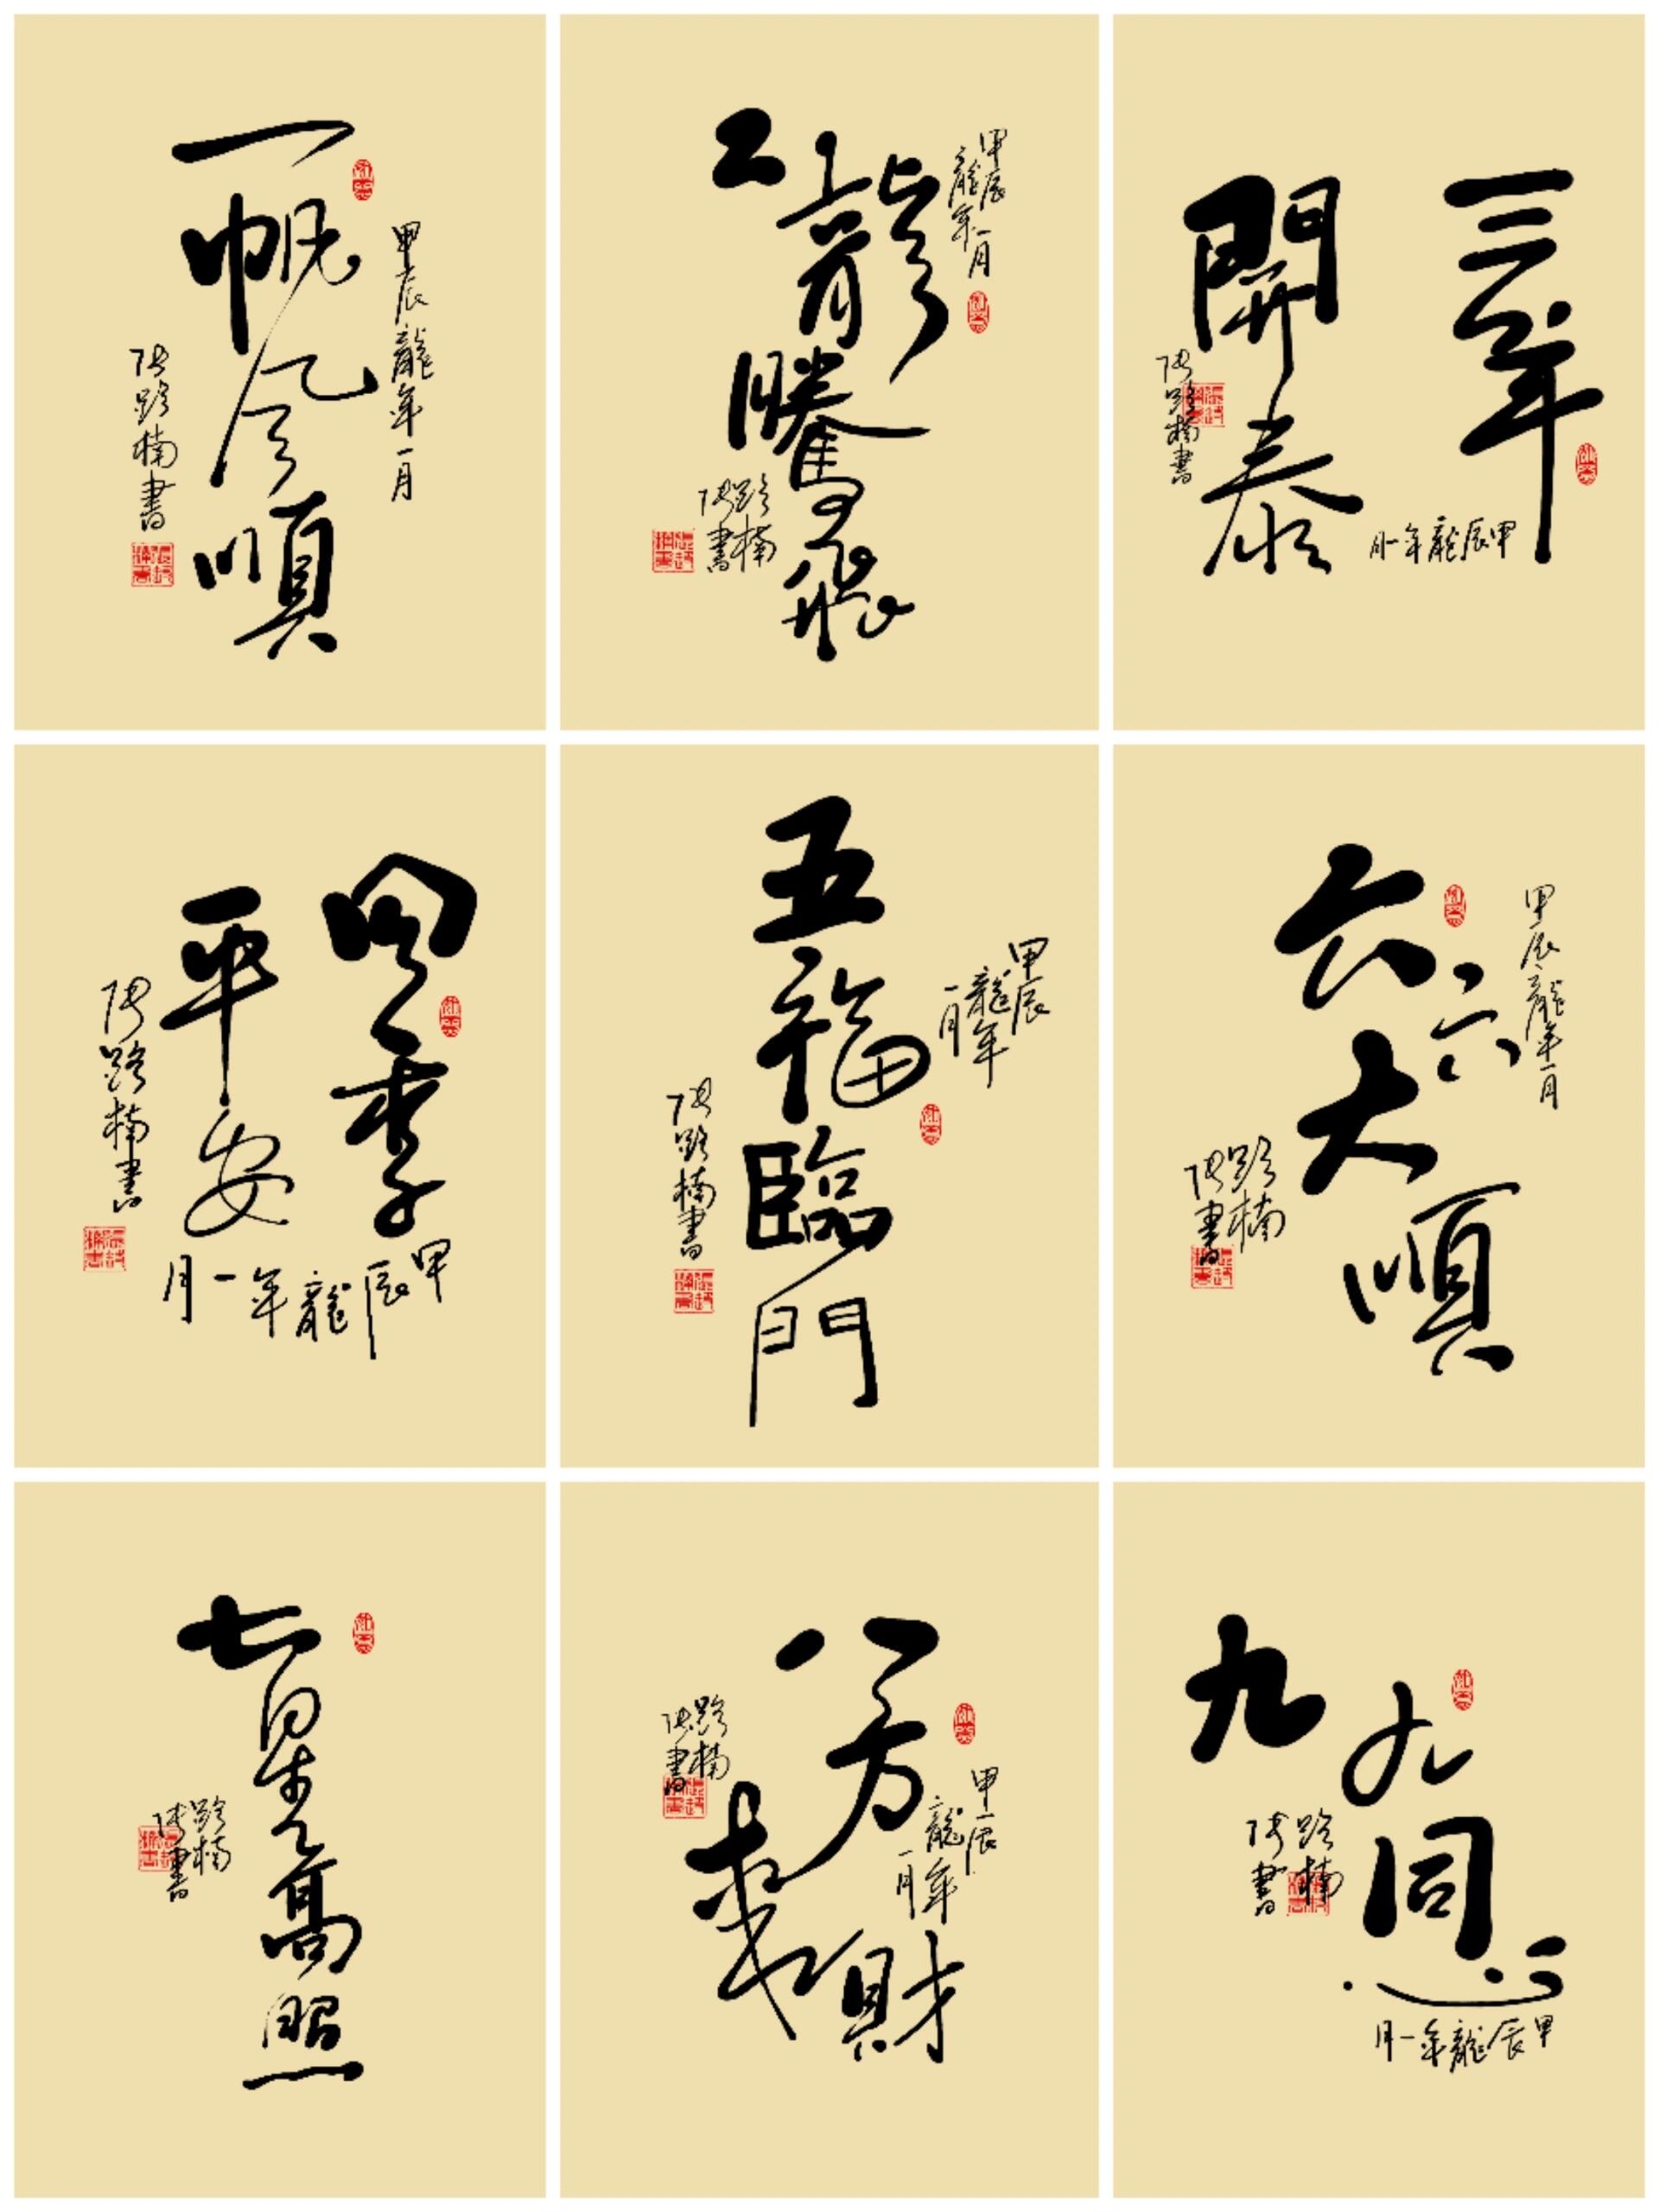 一帆风順
甲辰龍年一月
张路楠書
二龍騰飛
甲辰
龍年一月
张路楠書
三羊
開泰
甲辰龍年一月
张路楠書
四季
平安
甲辰龍年一月
张路楠書
五福臨門
甲辰
龍年
一月
张路楠書
六六大順
甲辰龍年一月
张路楠書
七星高照
张路楠書
八方
來財
甲辰
龍年
一月
张路楠書
九九同心
甲辰龍年一月
张路楠書